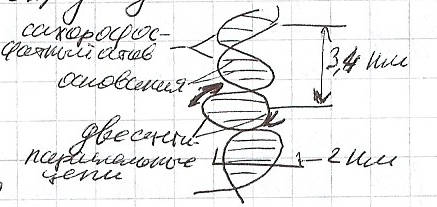 сахарофос-
фатный остов
основания
3,4 нм
две анти-
параллельные
цепи
2 нм